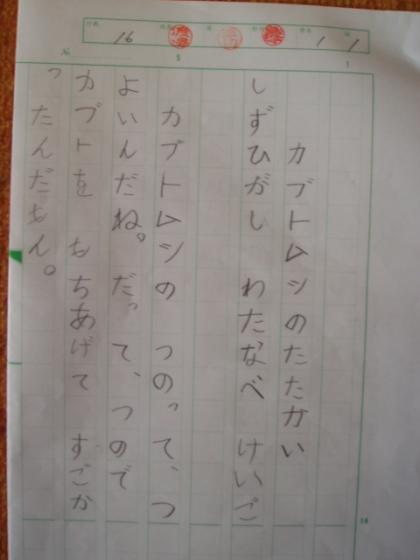 16
1
1
No.
カブトムシのたたかい
しずひがし わたなべ けいご
カブトムシの つのって、つ
よいんだね。だって、つので
カブトを もちあげて すごか
ったんだもん。